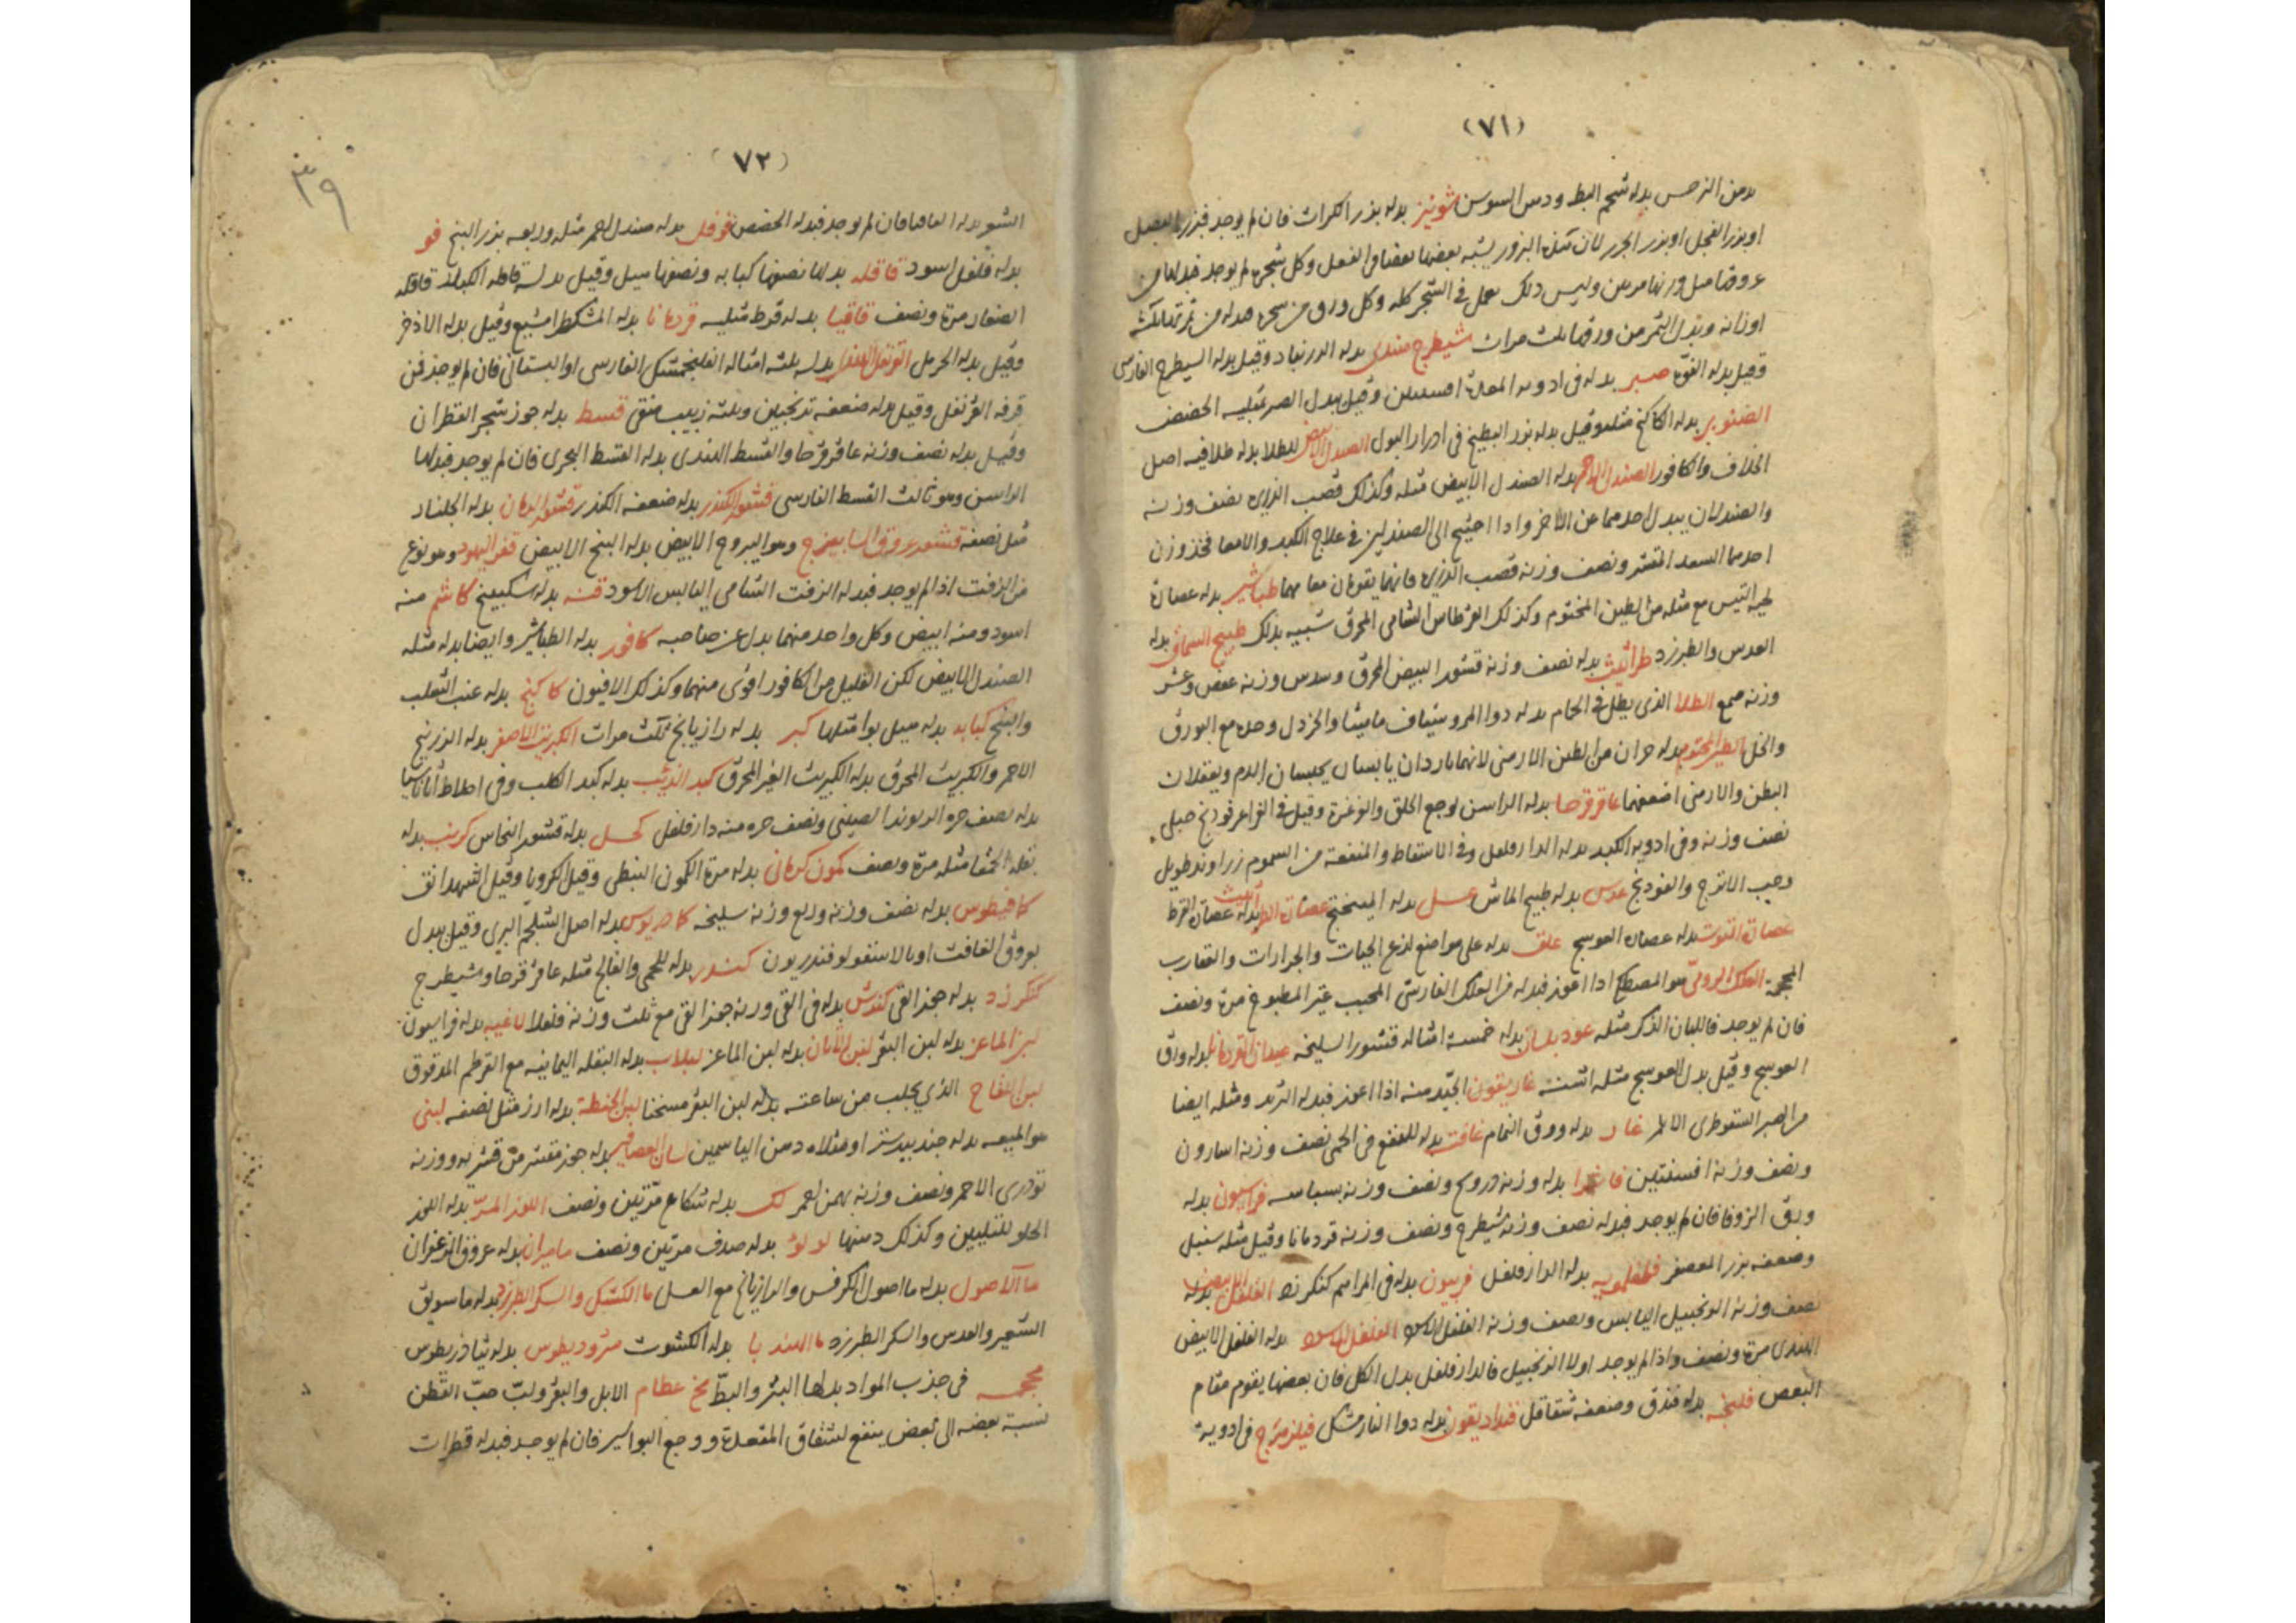 (٧١)
دهن النرجس بدله شحم البط ودهن السوسن شونيز بدله بذر الكراث فان لم يوجد فبزر البصل
او بزر الفجل او بزر الجزر لان هذه البزور يشبه بعضها بعضا في الفعل وكل شجرة لم يوجد
وليس ذلك يعمل في الشجر كله وكل ورق
اوزانه وبدل الثمر من ورقها ثلث مرات شيطرج هندى بدله الزرنباد وقيل بدله الشيطرج الفارسى
وقيل بدله الفوة صبر بدله في ادوية المعدة افسنتين وقيل بدل الصبر مثليه الحضض
الصنوبر بدله الكاكنج مثله وقيل بدله بزر البطيخ في ادرار البول الصندل الابيض للطلا بدله طلا فيه اصل
الخلاف والكافور الصندل الاحمر بدله الصندل الابيض مثله وكذلك قصب الذريره نصف وزنه
والصندلان يبدل احدهما عن الاخر واذا احتيج الى الصندلين في علاج الكبد والامعا فخذ وزن
احدهما السعد المقشر ونصف وزنه قصب الذريره فانهما يقومان مقامهما طباشير بدله عصارة
لحية التيس مع مثله من الطين المختوم وكذلك القرطاس الشامى المحرق شبيه بذلك طبيخ السماق بدله
العدس والطبرزد طراثيث بدله نصف وزنه قشور البيض المحرق وسدس وزنه عفص وعشر
وزنه صمغ الطلا الذى يطلى في الحمام بدله دوا المر وشياف ماميثا والخردل وحده مع البورق
والخل الطين المختوم بدله من الطين الارمنى لانهما باردان يابسان يحبسان الدم ويعقلان
البطن والارمنى اضعفهما عاقرقرحا بدله الراسن لوجع الحلق والوغرة وقيل في الغراغر فودنج جبلى
نصف وزنه وفي ادوية الكبد بدله الدارفلفل وفي الاسقاط والمنفعة من السموم زراوند طويل
وحب الاترج والفودنج عدس بدله طبيخ الماش عسل بدله الميبختج عصارة بدله عصارة القرظ
عصارة التوت بدله عصارة العوسج علق بدله على مواضع لذع الحيات والجرارات والعقارب
المحجمة العلك الرومى هو المصطكى اذا اعوز فبدله من العلك الفارسى المجبب غير المطبوخ مرة ونصف
فان لم يوجد فاللبان الذكر مثله عود بلسان بدله خمسة امثاله قشور السليخه عيدان بدله ورق
العوسج وقيل بدل العوسج مثله اشنه غاريقون الجيد منه اذا اعوز فبدله التربد ومثله ايضا
من الصبر السقوطرى الاحمر غار بدله ورق النمام غافت بدله للنفع في الحمى نصف وزنه اسارون
ونصف وزنه افسنتين فاشرا بدله وزنه درونج ونصف وزنه بسباسه فراسيون بدله
ورق الزوفا فان لم يوجد فبدله نصف وزنه شيطرج ونصف وزنه قردمانا وقيل مثله سنبل
وضعفه بزر العصفر فلفلمويه بدله الدارفلفل فربيون بدله في المراهم كنكرزد الفلفل الابيض بدله
نصف وزنه الزنجبيل اليابس ونصف وزنه الفلفل الاسود الفلفل الاسود بدله الفلفل الابيض
الهندى مرة ونصف واذا لم يوجد اولا الزنجبيل فالدارفلفل بدل الكل فان بعضها يقوم مقام
البعض فلنجه بدله فندق وضعفه شقاقل فنداديقون بدله دوا الفارمشكل فيلزهرج في ادوية
(٧٢)
٣٩
النشر بدله العاقيا فان لم يوجد فبدله الحضض فوفل بدله صندل احمر مثله وربعه بزر البنج فو
بدله فلفل اسود قاقله بدلها نصفها كبابه ونصفها هيل وقيل بدله قاقله الكبار قاقله
الصغار مرة ونصف قاقيا بدله قرط مثليه قردمانا بدله المشكطرامشيع وقيل بدله الاذخر
وقيل بدله الحرمل القرنفل بدله ثلثه امثاله الفلنجمشك الفارسى او البستانى فان لم يوجد فمن
قرفه القرنفل وقيل بدله ضعفه ترنجبين وثلثه زبيب منقى قسط بدله جوز شجر القطران
وقيل بدله نصف وزنه عاقرقرحا والقسط الهندى بدله القسط البحرى فان لم يوجد فبدلها
الراسن وهو ثالث القسط الفارسى قشور الكندر بدله ضعفه الكندر قشور الرمان بدله الجلنار
مثل نصفه قشور عروق السابيزج وهو اليبروح الابيض بدله البنج الابيض قفر اليهود وهو نوع
من الزفت اذا لم يوجد فبدله الزفت الشامى اليابس الاسود قنه بدله سكبينج كاشم منه
اسود ومنه ابيض وكل واحد منهما بدل عن صاحبه كافور بدله الطباشير وايضا بدله مثله
الصندل الابيض لكن القليل من الكافور اقوى منهما وكذلك الافيون كاكنج بدله عنب الثعلب
والبنج كبابه بدله هيل بوا مثلها كبر بدله رازيانج ثلث مرات الكبريت الاصفر بدله الزرنيخ
الاحمر والكبريت المحرق بدله الكبريت الغير المحرق كبد الذئب بدله كبد الكلب وفي اخلاط اثاناسيا
بدله نصف جزء الريوند الصينى ونصف جزء منه دارفلفل كحل بدله قشور النحاس كرنب بدله
بقلة الحمقا مثله مرة ونصف كمون كرمانى بدله مرة الكمون النبطى وقيل الكرويا وقيل الشهدانق
كمافيطوس بدله نصف وزنه وربع وزنه سليخه كمادريوس بدله اصل الشلجم البرى وقيل بدل
بعروق الغافت او بالاسقولوقندريون كندر بدله للحمى والفالج مثله عاقرقرحا وشيطرج
كنكرزد بدله جوز القى كندش بدله في القى وزنه جوز القى مع ثلث وزنه فلفلا لاغيه بدله فراسيون
لبن الماعز بدله لبن البقر لبن الاتان بدله لبن الماعز لبلاب بدله البقله اليمانيه مع القرطم المدقوق
لبن اللقاح الذى يحلب من ساعته بدله لبن البقر مسخنا لبن الحنطة بدله ارز مثل نصفه لبنى
هو الميعه بدله جندبيدستر او مثلاه دهن الياسمين لسان العصافير بدله جوز مقشر من قشريه ووزنه
تودرى الاحمر ونصف وزنه بهمن احمر لك بدله شكاع مرتين ونصف اللوز المر بدله اللوز
الحلو للتليين وكذلك دهنها لولو بدله صدف مرتين ونصف ماميران بدله عروق الزعفران
ما الاصول بدله ما اصول الكرفس والرازيانج مع العسل ما الكشك والسكر الطبرزد بدله ما سويق
الشعير والعدس والسكر الطبرزد ما الهندبا بدله الكشوث مثروديطوس بدله ثيادريطوس
محجمه في جذب المواد بدلها البثر والبط مخ عظام الابل والبقر ولب حب القطن
نسبة بعضه الى بعض ينفع لشقاق المقعدة ووجع البواسير فان لم يوجد فبدله قطرات